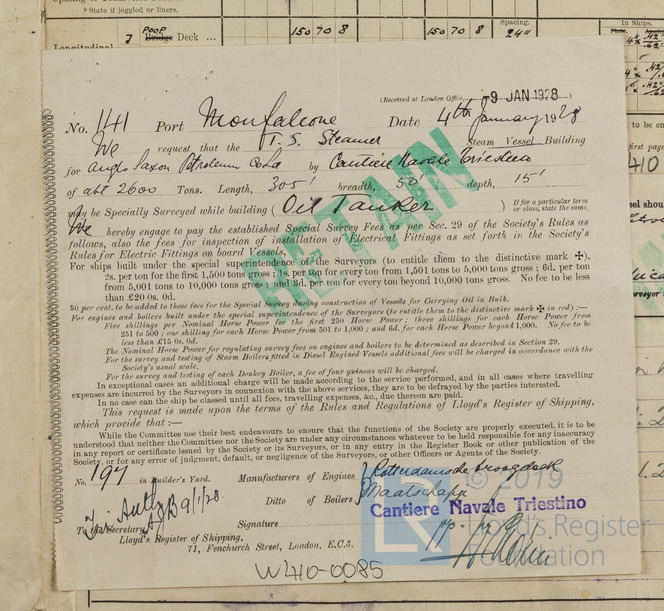 * State if joggled or liners.
Poop
Bridge Deck ... 150 70 8
Spacing.
24"
In Ships.
Longitudinal
(Received at London Office 9 JAN 1928)
No. 141 Port Monfalcone Date 4th January 1928
We request that the T. S. Steamer Steam Vessel Building
for Anglo Saxon Petroleum Co Ld by Cantiere Navale Triestino
of abt 2600 Tons. Length, 305' breadth, 50' depth, 15'
may be Specially Surveyed while building ( Oil Tanker ) If for a particular term or class, state the same.
We hereby engage to pay the established Special Survey Fees as per Sec. 29 of the Society's Rules as
follows, also the fees for inspection of installation of Electrical Fittings as set forth in the Society's
Rules for Electric Fittings on board Vessels.
For ships built under the special superintendence of the Surveyors (to entitle them to the distinctive mark ✠),
2s. per ton for the first 1,500 tons gross; 1s. per ton for every ton from 1,501 tons to 5,000 tons gross; 6d. per ton
from 5,001 tons to 10,000 tons gross; and 3d. per ton for every ton beyond 10,000 tons gross. No fee to be less
than £20 0s. 0d.
50 per cent. to be added to these fees for the Special Survey during construction of Vessels for Carrying Oil in Bulk.
For engines and boilers built under the special superintendence of the Surveyors (to entitle them to the distinctive mark ✠ in red):—
Five shillings per Nominal Horse Power for the first 250 Horse Power; three shillings for each Horse Power from
251 to 500; one shilling for each Horse Power from 501 to 1,000; and 6d. for each Horse Power beyond 1,000. No fee to be
less than £15 0s. 0d.
The Nominal Horse Power for regulating survey fees on engines and boilers to be determined as described in Section 29.
For the survey and testing of Steam Boilers fitted in Diesel Engined Vessels additional fees will be charged in accordance with the
Society's usual scale.
For the survey and testing of each Donkey Boiler, a fee of four guineas will be charged.
In exceptional cases an additional charge will be made according to the service performed, and in all cases where travelling
expenses are incurred by the Surveyors in connexion with the above services, they are to be defrayed by the parties interested.
In no case can the ship be classed until all fees, travelling expenses, &c., due thereon are paid.
This request is made upon the terms of the Rules and Regulations of Lloyd's Register of Shipping,
which provide that:—
While the Committee use their best endeavours to ensure that the functions of the Society are properly executed, it is to be
understood that neither the Committee nor the Society are under any circumstances whatever to be held responsible for any inaccuracy
in any report or certificate issued by the Society or its Surveyors, or in any entry in the Register Book or other publication of the
Society, or for any error of judgment, default, or negligence of the Surveyors, or other Officers or Agents of the Society.
No. 197 in Builder's Yard. Manufacturers of Engines Rotterdamsche Droogdock
Ditto of Boilers Maatschapij
© 2019
Cantiere Navale Triestino
9/1/28
To the Secretary, Signature pp.
Lloyd's Register of Shipping,
71, Fenchurch Street, London, E.C.3.
LR
Lloyd's Register
Foundation
W410-0085